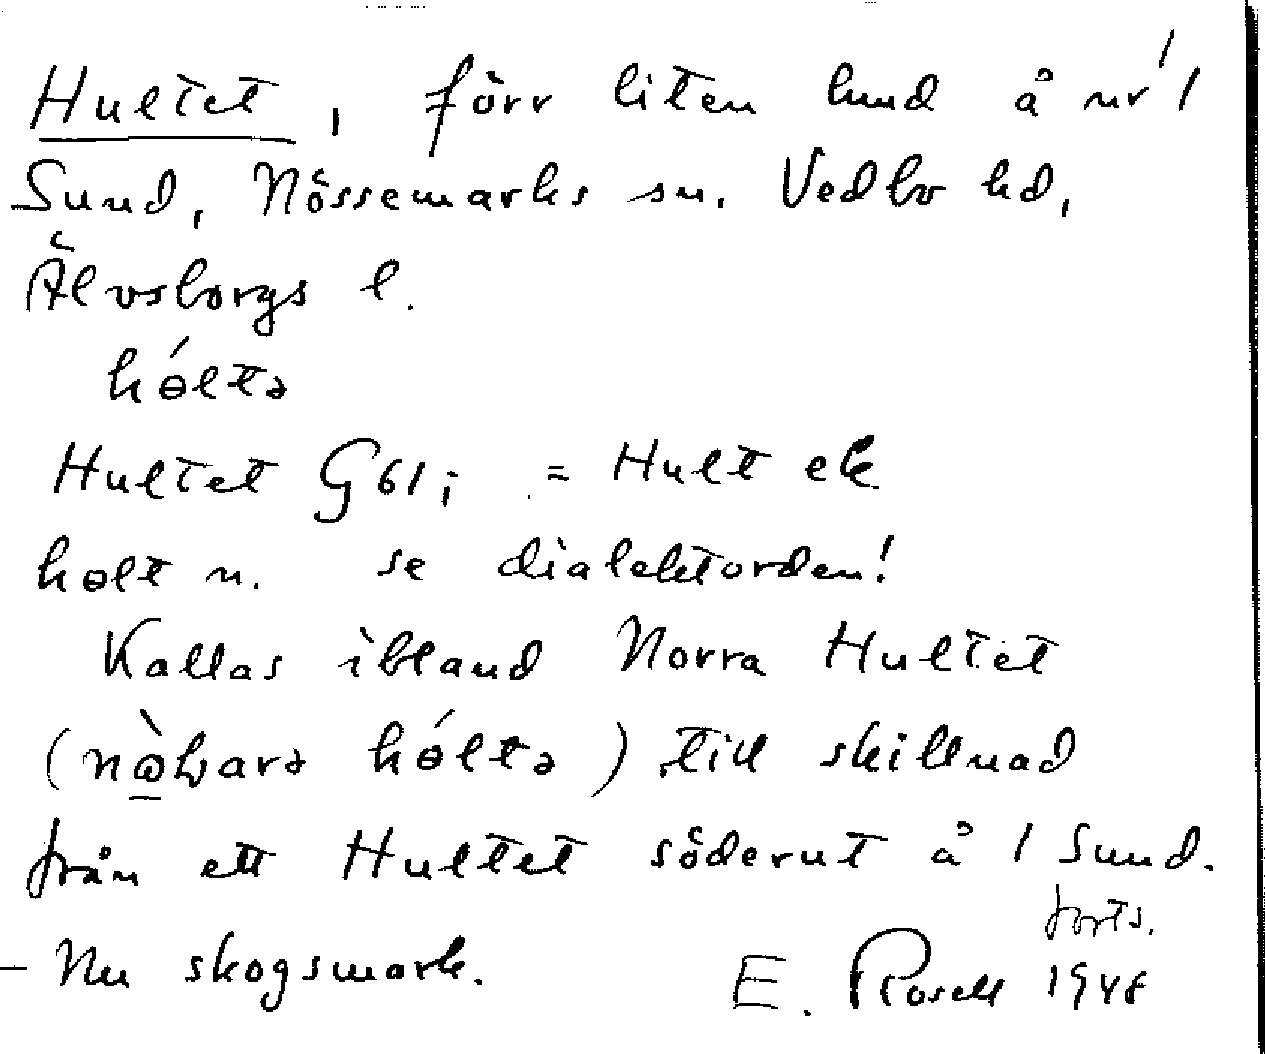 Hultet, förr liten lund å nr 1
Sund, Nössemarks sn. Vedbo hd,
Älvsborgs l.
hɵ́ltə
Hultet G61; = Hult ek
hɵlt n. se dialektorden!
Kallas ibland Norra Hultet
(hɵ́ltə) till skillnad
från ett Hultet söderut å 1 Sund.
forts.
- Nu skogsmark. E. Rosell 1948